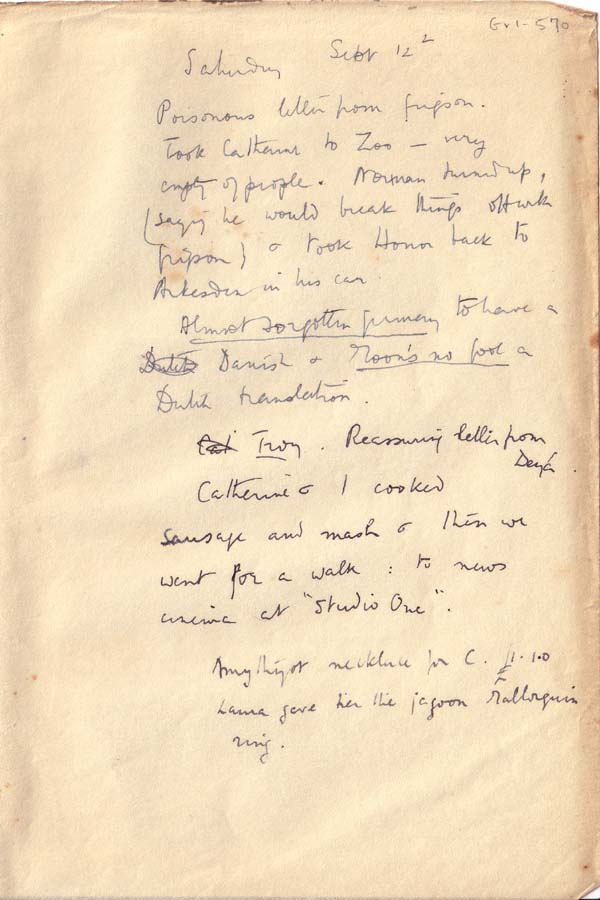 Gr1-570
Saturday Sept 12
Poisonous letter from Grigson.
Took Catherine to Zoo — very
empty of people. Norman turned up,
(says he would break things off with
Grigson) & took Honor back to
Arkesden in his car.
Almost Forgotten Germany to have a
Dutch Danish & Moon's no fool a
Dutch translation.
Troy. Reassuring letter from
Deyá.
Catherine & I cooked
sausage and mash & then we
went for a walk : to news
cinema at "Studio One".
Amythyst necklace for C. £1.1.0
Laura gave her the jagoon Mallorquin
ring.